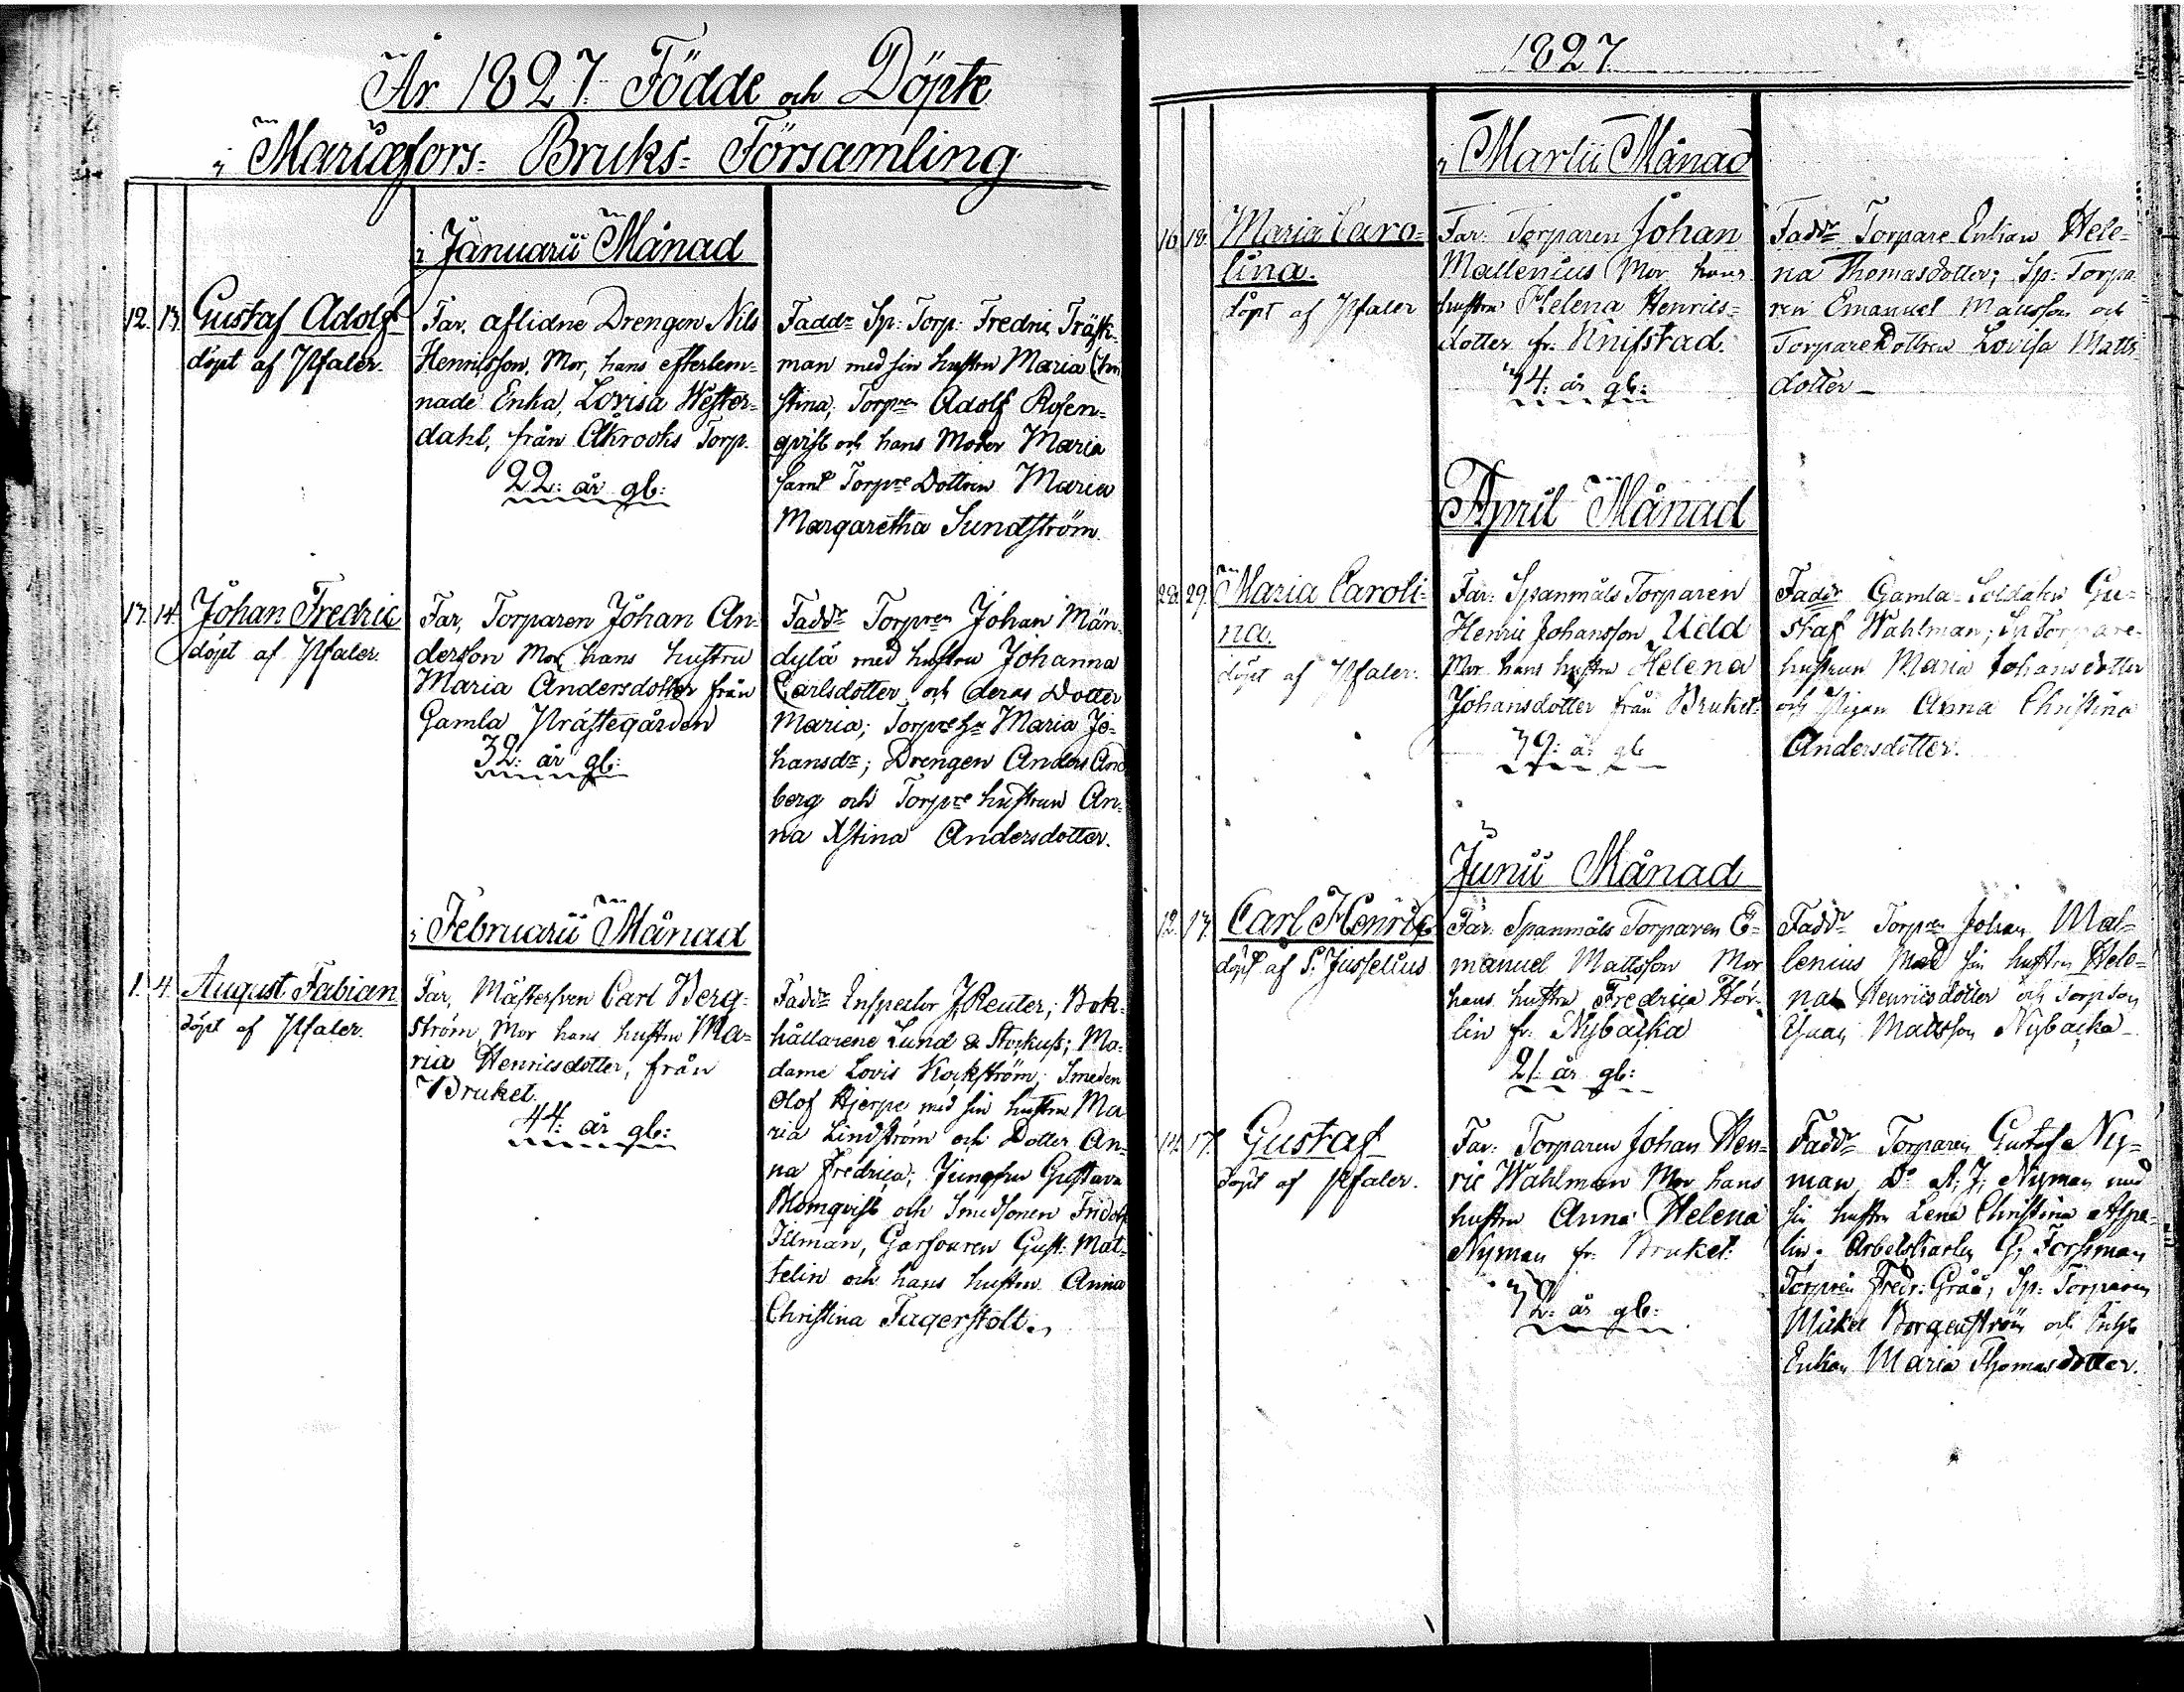 År 1827 Födde och Döpte
i Mariæfors- Bruks- Församling
i Januarii Månad
12. 13. Gustaf Adolf
döpt af Pfaler.
Far, aflidne Drengen Nils
Henricsson, Mor, hans efterlem-
nade Enka, Lovisa Wester-
dahl, från Åkrooks Torp.
22: år gl:
Faddr Sp: Torp: Fredric Träsk-
man med sin hustru Maria Chri
stina; Torpren Adolf Rosen-
qvist och hans Moder Maria
samt Torpre Dottren Maria
Margaretha Sundström.
13. 14. Johan Fredric
döpt af Pfaler.
Far, Torparen Johan An-
dersson Mor hans hustru
Maria Andersdotter från
Gamla Prästegården
32: år gl:
Faddr Torpren Johan Män-
dylä med hustru Johanna
Carlsdotter och deras Dotter
Maria; Torpre hu Maria Jo-
hansdr; Drengen Anders And
berg och Torpre hustrun An-
na Xstina Andersdotter.
i Februarii Månad
1. 4. August Fabian
döpt af Pfaler.
Far, Mästersven Carl Berg-
ström, Mor hans hustru Ma-
ria Henricsdotter, från
Bruket.
44: år gl:
Faddr Inspector J Reuter; Bok-
hållarene Lund & Stockus; Ma-
dame Lovis Kockström; Smeden
Olof Hjerpe med sin hustru Ma
ria Lindström och Dotter An-
na Fredrica; Jungfru Gustava
Blomqvist och Smedsonen Fridolf
Tilman, Garfvaren Gust: Mat-
telin och hans hustru Anna
Christina Fagerstolt.
1827
i Martii Månad
16. 18. Maria Caro-
lina.
döpt af Pfaler
Far: Torparen Johan
Mallenius Mor hans
hustru Helena Henrics-
dotter fr: Knifstad.
34: år gl:
Faddr Torpare Enkan Hele-
na Thomasdotter; Sp: Torpa
ren Emanuel Mattsson och
Torpare Dottren Lovisa Matts
dotter
April Månad
28. 29. Maria Caroli-
na.
döpt af Pfaler.
Far: Spanmåls Torparen
Henric Johansson Udd
Mor hans hustru Helena
Johansdotter från Bruket.
39: år gl
Faddr Gamla Soldaten Gu-
staf Wahlman; Sp Torpare-
hustrun Maria Johansdotter
och Pigan Anna Christina
Andersdotter.
Junii Månad
12. 13. Carl Henric
döpt af S. Jusselius
Far: Spanmåls Torparen E-
manuel Mattsson Mor
hans hustru Fredrica Hör-
lin fr: Nybacka
21: år gl:
Faddr Torpren Johan Mal-
lenius med sin hustru Hele-
na Henricsdotter och Torpson
Mattsson Nybacka
14. 17. Gustaf
döpt af Pfaler.
Far: Torparen Johan Hen-
ric Wahlman Mor hans
hustru Anna Helena
Nyman fr: Bruket.
32: år gl:
Faddr Torparen Gustaf Ny-
man Do A. J. Nyman med
sin hustru Lena Christina Aspe-
lin. Arbetskarlen G. Forsman
Torpren Fredr: Gråå, Sp: Torparen
Mickel Borgenström och
Enkan Maria Thomasdotter.